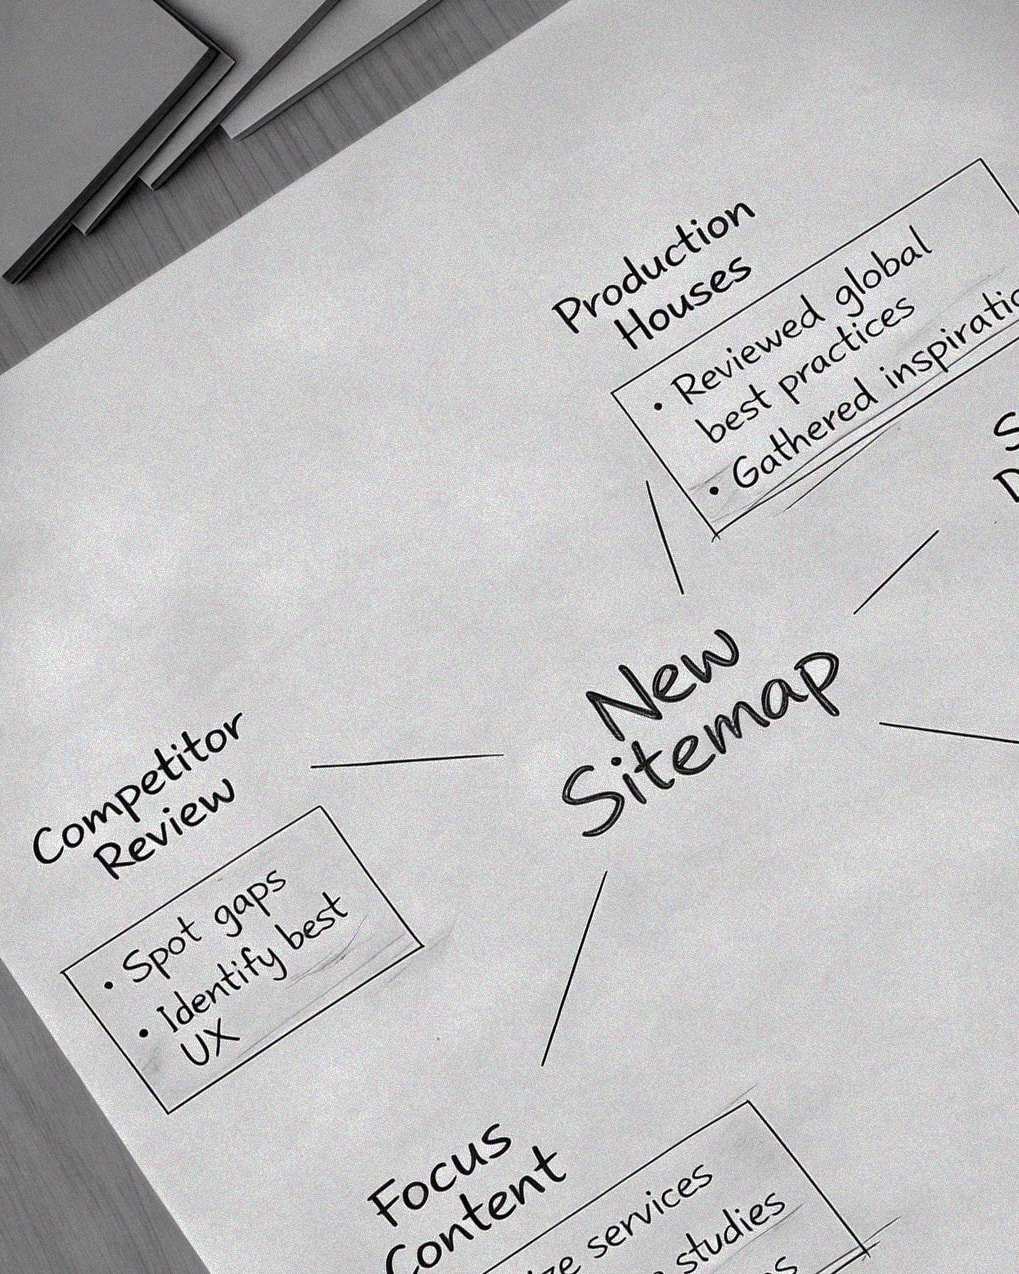 Production
Houses
• Reviewed global
best practices
• Gathered
New
Sitemap
Competitor
Review
• Spot gaps
• Identify best
UX
Focus
Content
services
studies